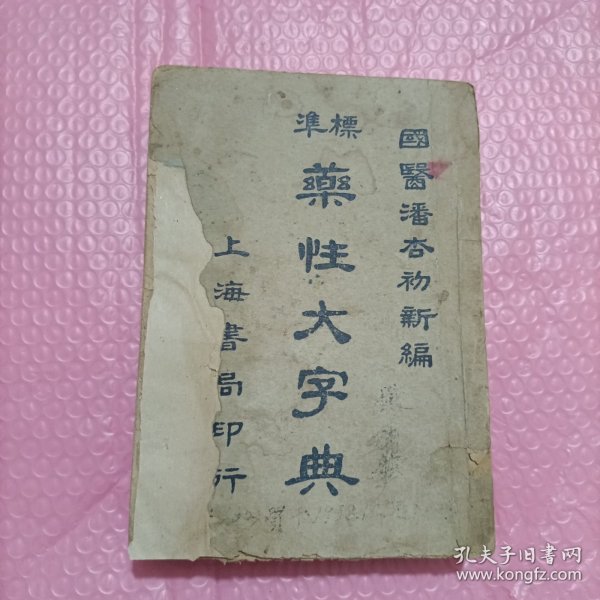 國醫潘杏初新編
標準
藥性大字典
上海書局印行
孔夫子旧書网
www.kongfz.com